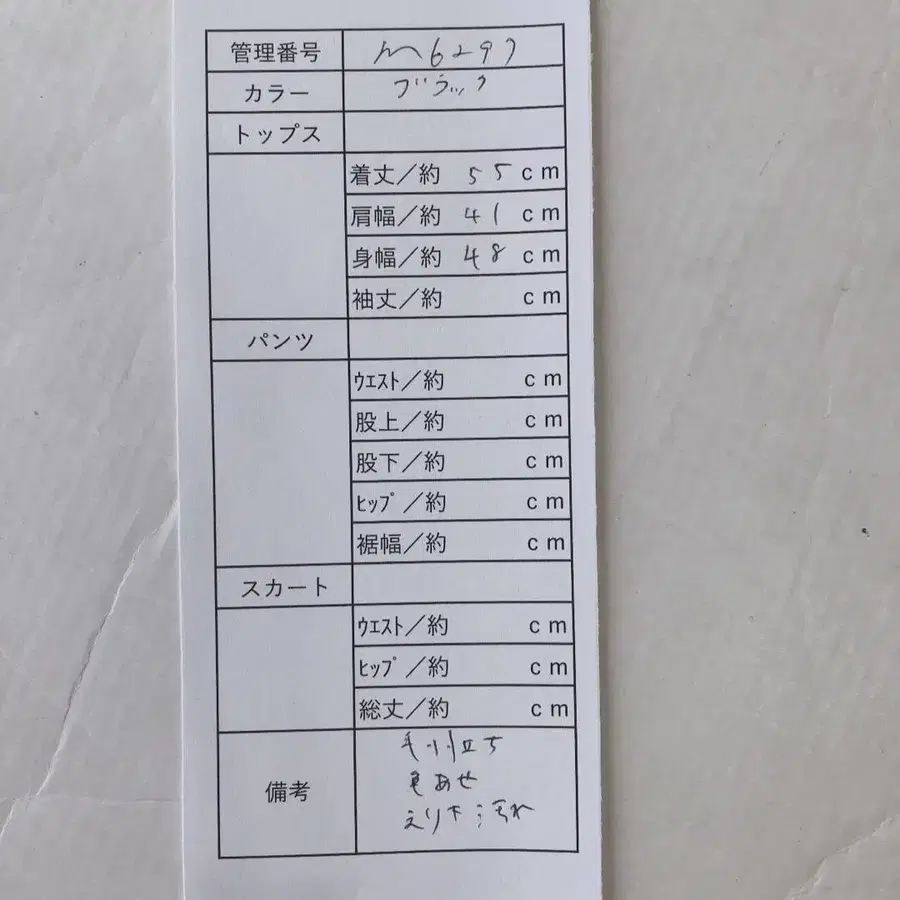 管理番号 M6297
カラー ブラック
トップス
着丈／約 55 cm
肩幅／約 41 cm
身幅／約 48 cm
袖丈／約 cm
パンツ
ｳｴｽﾄ／約 cm
股上／約 cm
股下／約 cm
ﾋｯﾌﾟ／約 cm
裾幅／約 cm
スカート
ｳｴｽﾄ／約 cm
ﾋｯﾌﾟ／約 cm
総丈／約 cm
備考
毛羽立ち
色あせ
えり下汚れ